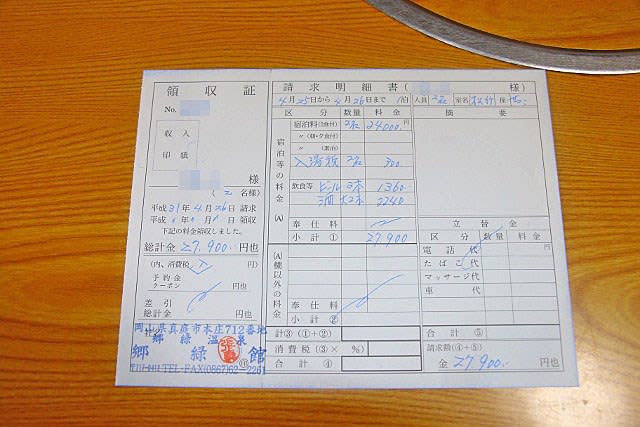 領収証
No.
収入
印紙
様
(2名様)
平成31年4月26日 請求
平成 年 月 日 領収
下記の料金領収しました。
総計金 27,900 円也
(内、消費税 円)
予約金
クーポン 円也
差引
総計金 円也
岡山県真庭市本庄712番地
郷緑温泉
郷緑館
TEL・FAX(0867)62-2261
請求明細書( 様)
4月25日から4月26日まで 1泊 人員 2名 室名 松竹 係
区分 数量 料金 摘要
宿泊等の料金(A)
宿泊料(2食付) 2名 24000 円
〃(朝・夕食付)
〃(素泊)
入湯税 2名 300
飲食等 ビール 2本 1360
酒 大2本 2240
奉仕料
小計① 27,900
(A)欄以外の料金
奉仕料
小計②
計③(①+②)
消費税(③× %)
合計④
立替金
区分 数量 料金
電話代
たばこ代
マッサージ代
車代
合計⑤
請求額(④+⑤)
金 27,900 円也